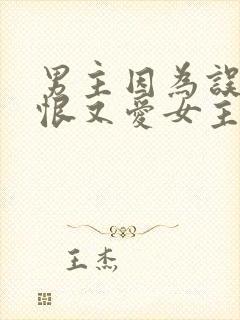 男主因為誤
恨又愛女主
王杰